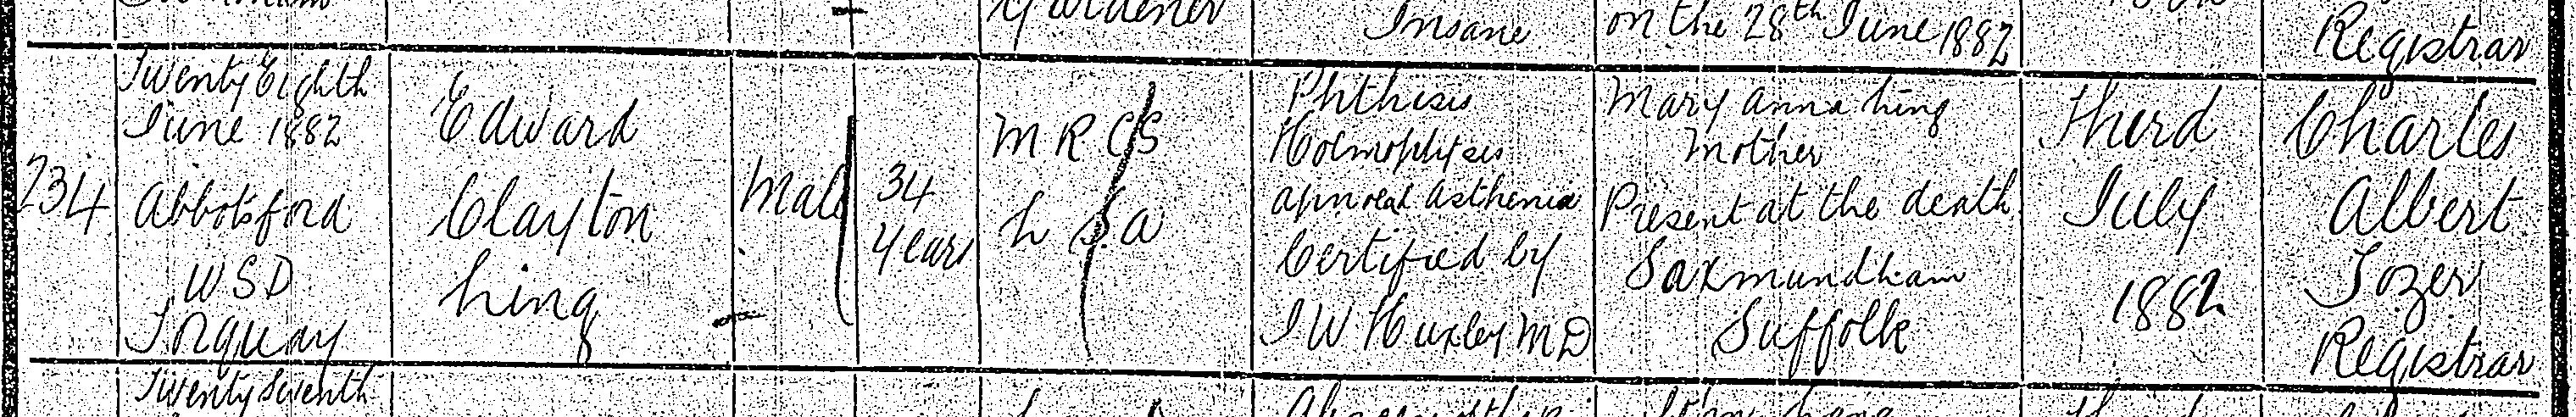 Gardener
Insane
on the 28th June 1882
Registrar
234
Twenty Eighth
June 1882
Abbotsford
W S D
Torquay
Edward
Clayton
Ling
Male
34
Years
M R C S
L S A
Phthisis
Hoemophtysis
apnoeal Asthenia
Certified by
J W Huxley M D
Mary Anna Ling
Mother
Present at the death
Saxmundham
Suffolk
Third
July
1882
Charles
Albert
Tozer
Registrar
Twenty Seventh